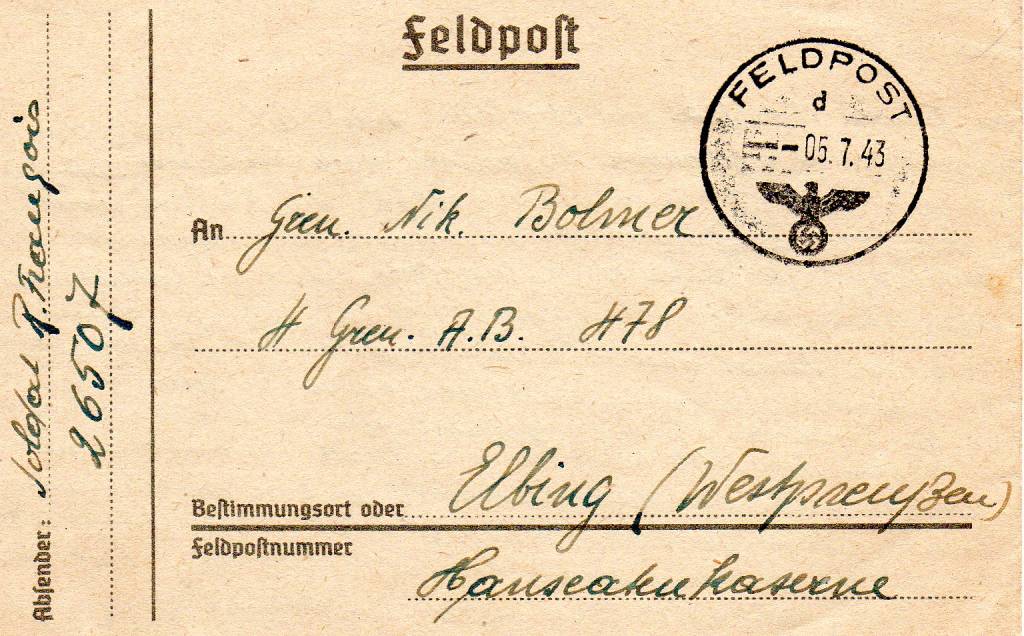 Feldpost
FELDPOST
d
-05.7.43
An Gren. Nik. Bolmer
4 Gren. A.B. 478
Bestimmungsort oder Elbing (Westpreußen)
Feldpostnummer
Hanseatenkaserne
Absender: Soldat P. Frangois
26507